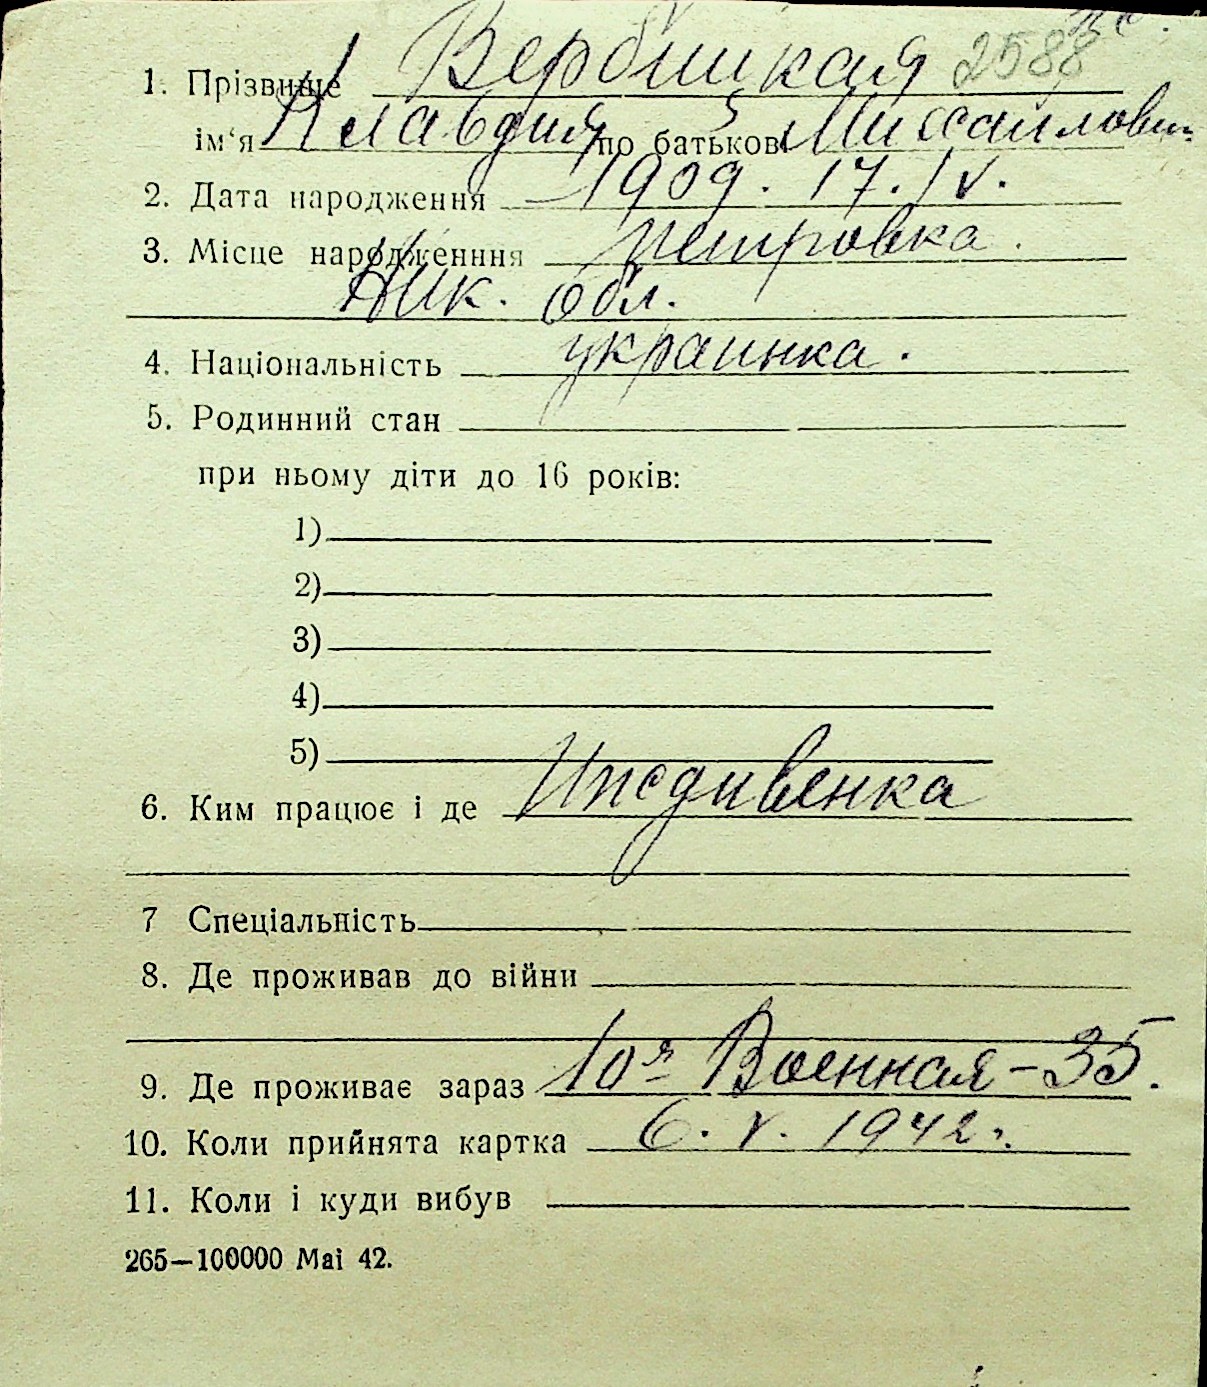 1. Прізвище Вербицкая 2588
ім'я Клавдия по батькові Михайловн
2. Дата народження 1909. 17. IV.
3. Місце народженння Петровка.
Ник. обл.
4. Національність украинка.
5. Родинний стан
при ньому діти до 16 років:
1)
2)
3)
4)
5)
6. Ким працює і де Иждивенка
7 Спеціальність
8. Де проживав до війни
9. Де проживає зараз 10я Военная - 35.
10. Коли прийнята картка 6. V. 1942 г.
11. Коли і куди вибув
265—100000 Mai 42.